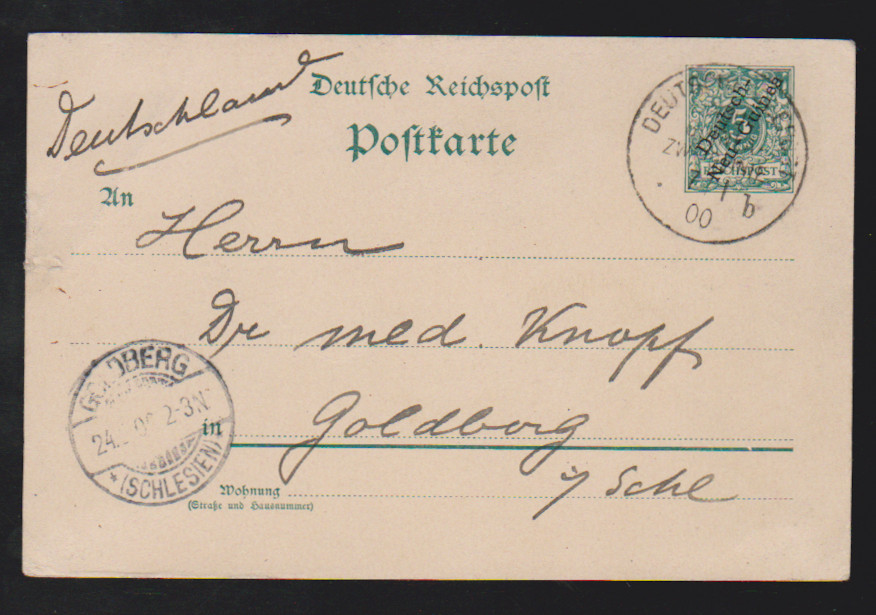 Deutschland
Deutsche Reichspost
Postkarte
Deutsch-
Neu-Guinea
5
REICHSPOST
DEUTSCHE SEEPOST
ZWEIGLINIE
7
00 b
An
Herrn
Dr med. Knopf
in Goldberg
i/ Schl
Wohnung
(Straße und Hausnummer)
GOLDBERG
24. 00 2-3N
*(SCHLESIEN)